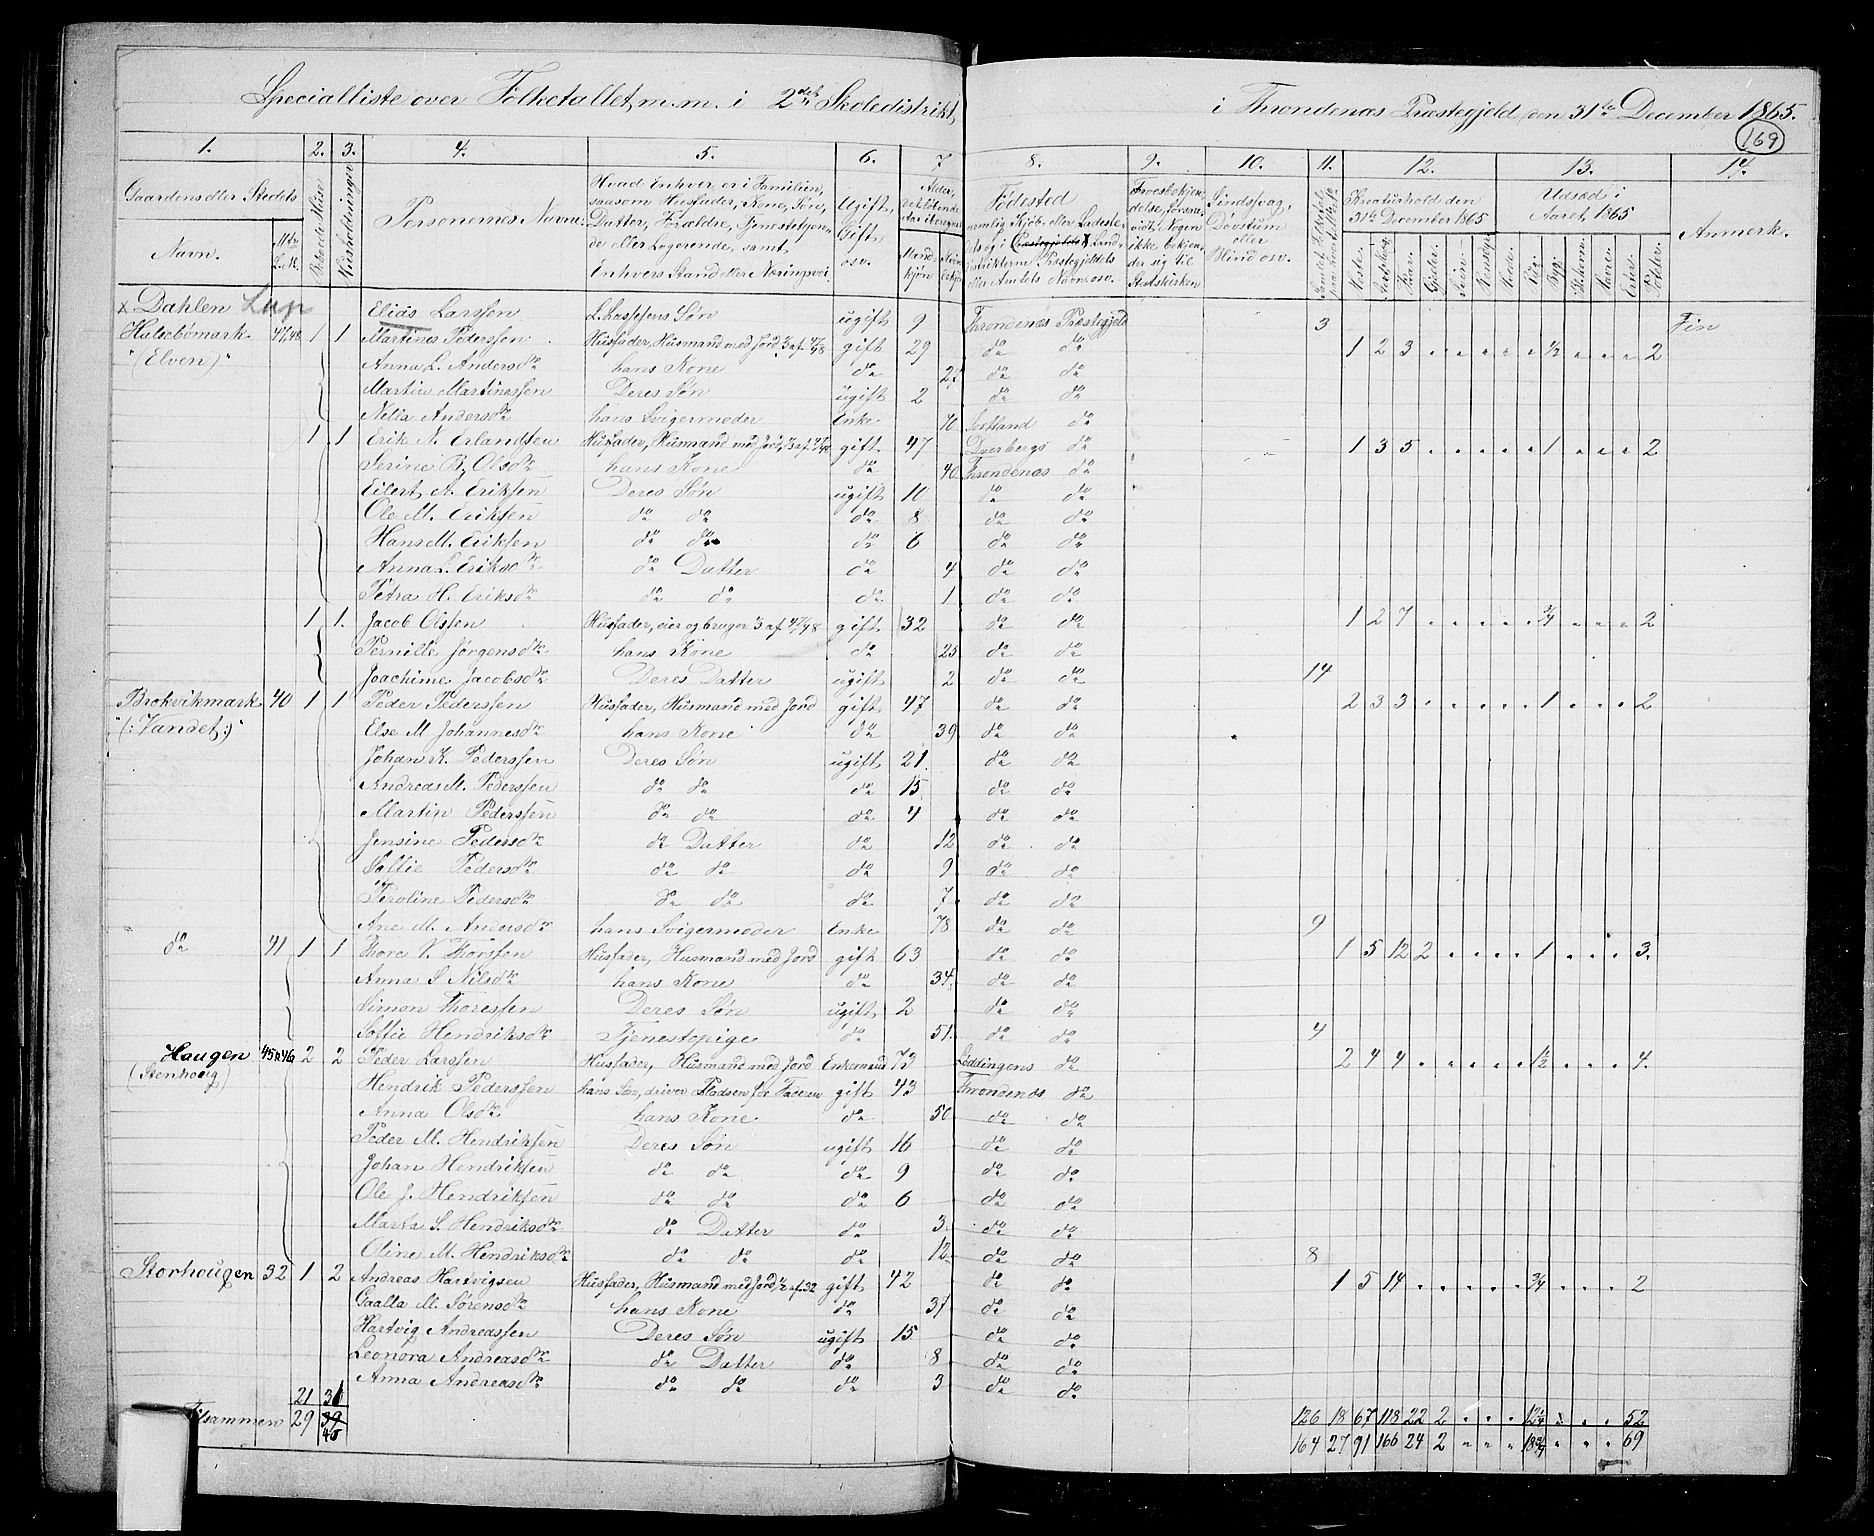 Specialliste over Folketallet m. m. i 2det Skoledistrikt i Throndenæs Præstegjeld den 31te December 1865.
169
1. 2. 3. 4. 5. 6. 7 8. 9. 10. 11. 12. 13. 14.
Gaardens eller Stedets Navn. Matr. L. N. Beboede Huse Huusholdninger Personernes Navne. Hvad Enhver er i Familien, saasom Husfader, Kone, Søn, Datter, Forældre, Tjenestetyende eller Logerende, samt Enhvers Stand eller Næringsvei Ugift, Gift osv. Alder, det løbende Aar iberegnet Mandkjøn Kvindekjøn
Fødested nemlig Kjøb- eller Ladestedets og i Landdistrikterne Præstegjeldets eller Amtets Navn osv. Troesbekjendelse, forsaavidt Nogen ikke bekjender sig til Statskirken Sindssvag, Døvstum eller Blind osv. Kreaturhold den 31te December 1865 Heste. Storfæ. Faar. Gjeder. Sviin. Rensdyr. Udsæd i Aaret 1865 Hvede. Rug. Byg. Havre. Erter. Poteter. Anmerk.
x Dahlen Lap Elias Larssen L. Lassesens Søn ugift 9 Throndenæs Præstegjeld 3 Fin
Halsebømark 47/48 1 1 Martines Pederssen Husfader, Husmand med Jord, 3 af 47/48 gift 29 do do 1 2 3 1/2 2
"(Elven)" Anna L. Andersdtr hans Kone do do do
Martin Martinessen Deres Søn ugift 2 do do
Nella Andersdtr hans Svigermoder Enke 76 Sortland do
1 1 Erik N. Erlandsen Husfader, Husmand med Jord, 3 af 47/48 gift 47 Dverbergs do 1 3 5 1 2
Serine B. Olsdtr hans Kone do 40 Throndenæs do
Eilert A. Eriksen Deres Søn ugift 10 do do
Ole M. Eriksen do do do 8 do do
Hans M. Eriksen do do do 6 do do
Anna L. Eriksdtr do Datter do 4 do do
Petra H. Eriksdtr do do do 1 do do
1 1. Jacob Olssen Husfader, eier og bruger 3 af 47/48 gift 32 do do 1 2 7 3/4 2
Pernille Jørgensdtr hans Kone do 25 do do
Joachime Jacobsdtr Deres Datter ugift 2 do do 14
Brokvikmark 40 1 1 Peder Pederssen Husfader, Husmand med Jord gift 47 do do 2 3 3 1 2
"(:Vandet:)" Else M Johannesdtr hans Kone do 39 do do
Johan K. Pederssen Deres Søn ugift 21. do do
Andreas M. Pederssen do do do 15 do do
Martin Pederssen do do do 4 do do
Jensine Pedersdtr do Datter do 12 do do
Soffie Pedersdtr do do do 9 do do
Peroline Pedersdtr do do do 7 do do
Ane M. Andersdtr hans Svigermoder Enke 78 do do 9
do 41 1 1 Thore V. Thorssen Husfader, Husmand med Jord gift 63 do do 1 5 12 2 1 3.
Anna S Nilsdtr hans Kone do 34. do do
Simon Thoressen Deres Søn ugift 2 do do
Soffie Hendriksdtr Tjenestepige do 51. do do 4
Haugen 45 & 46a 2 2 Peder Larssen Husfader, Husmand med Jord Enkemand 72 Loddingens do 2 4 4 1/2 4.
(Stenhoug) Hendrik Pederssen hans Søn, driver Pladsen for Faderen gift 43 Throndenæs do
Anna Olsdtr hans Kone do 50 do do
Peder M. Hendriksen Deres Søn ugift 16 do do
Johan Hendriksen do do do 9 do do
Ole J. Hendriksen do do do 6 do do
Marta S. Hendriksdtr do Datter do 3. do do
Oline M. Hendriksdtr do do do 12 do do 8
Storhougen 32 1 2 Andreas Hartvigsen Husfader, Husmand med Jord 1/2 af 32 gift 42 do do 1 5 14 3/4 2
Gaalla M. Sørensdtr hans Kone do 37 do do
Hartvig Andreassen Deres Søn ugift 15 do do
Leonora Andreasdtr do Datter do 8 do do
Anna Andreasdtr do do do 3 do do
21 31
Tilsammen 29 39 126 18 67 118 22 2 12 1/4 52
45 164 27 91 166 24 2 18 3/4 69